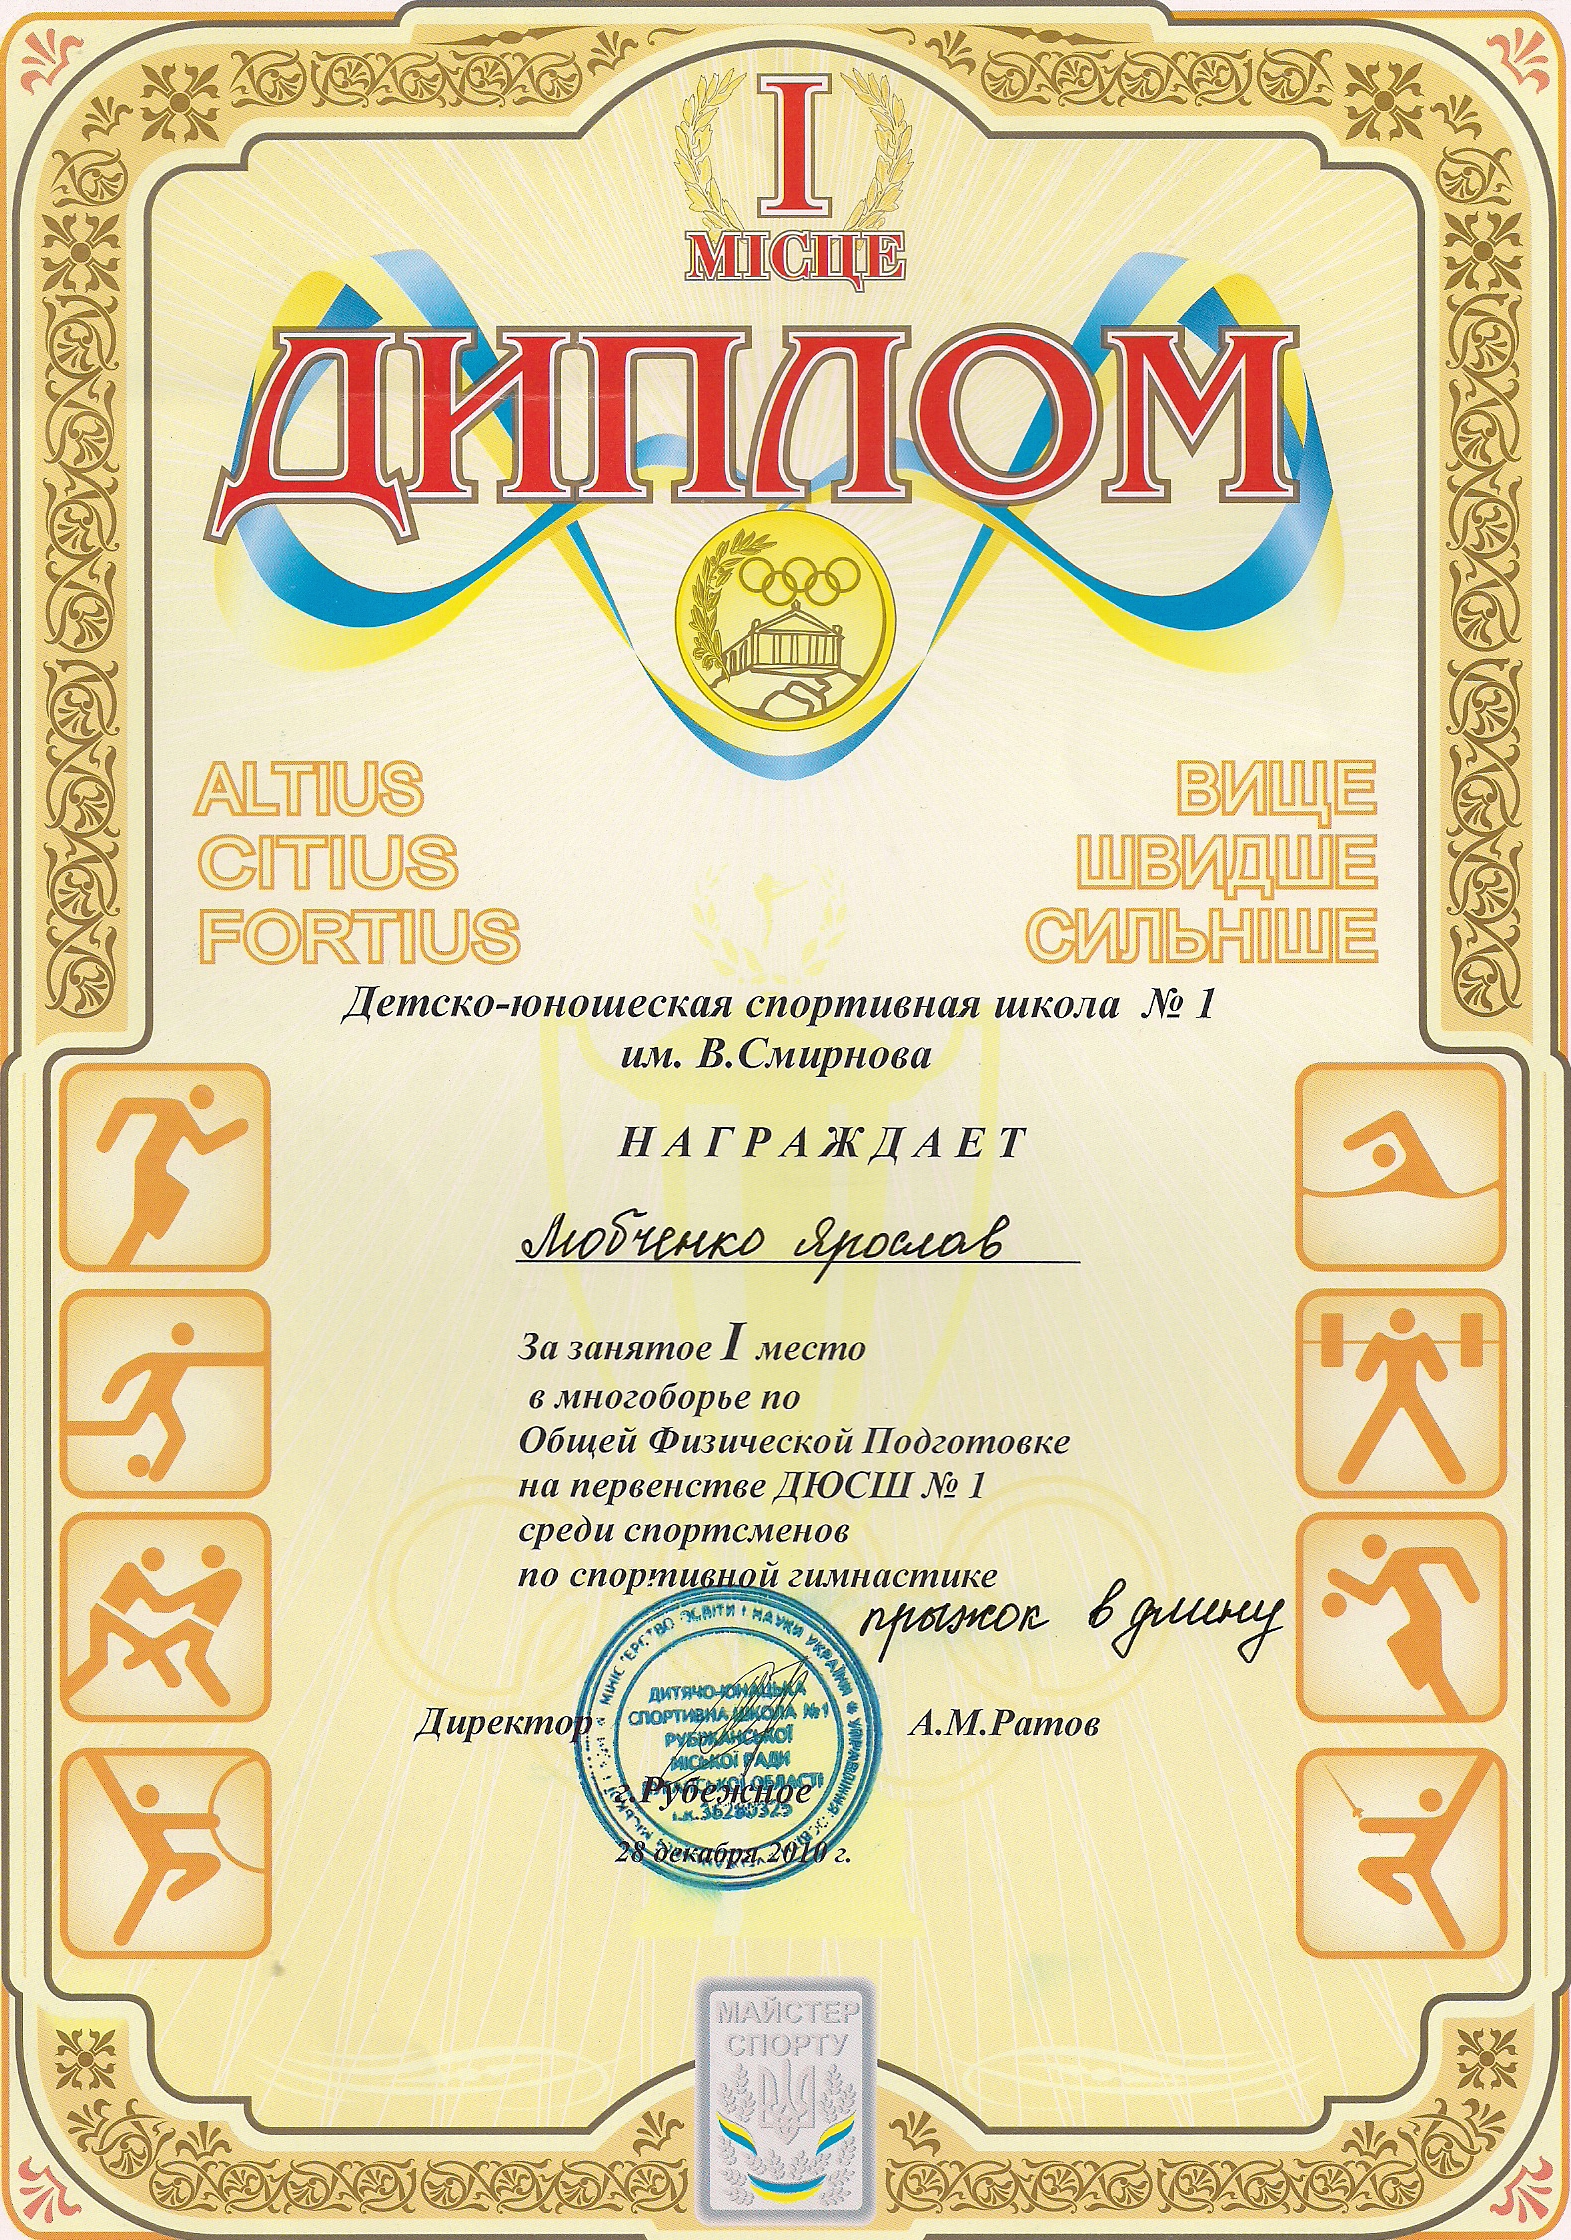 I
МІСЦЕ
ДИПЛОМ
ALTIUS
CITIUS
FORTIUS
ВИЩЕ
ШВИДШЕ
СИЛЬНІШЕ
Детско-юношеская спортивная школа № 1
им. В.Смирнова
НАГРАЖДАЕТ
Любченко Ярослав
За занятое I место
в многоборье по
Общей Физической Подготовке
на первенстве ДЮСШ № 1
среди спортсменов
по спортивной гимнастике
прыжок в длину
МІНІСТЕРСТВО ОСВІТИ І НАУКИ УКРАЇНИ * УПРАВЛІННЯ
ДИТЯЧО-ЮНАЦЬКА
СПОРТИВНА ШКОЛА №1
РУБІЖАНСЬКОЇ
МІСЬКОЇ РАДИ
ЛУГАНСЬКОЇ ОБЛАСТІ
Директор
А.М.Ратов
г.Рубежное
28 декабря 2010 г.
МАЙСТЕР
СПОРТУ